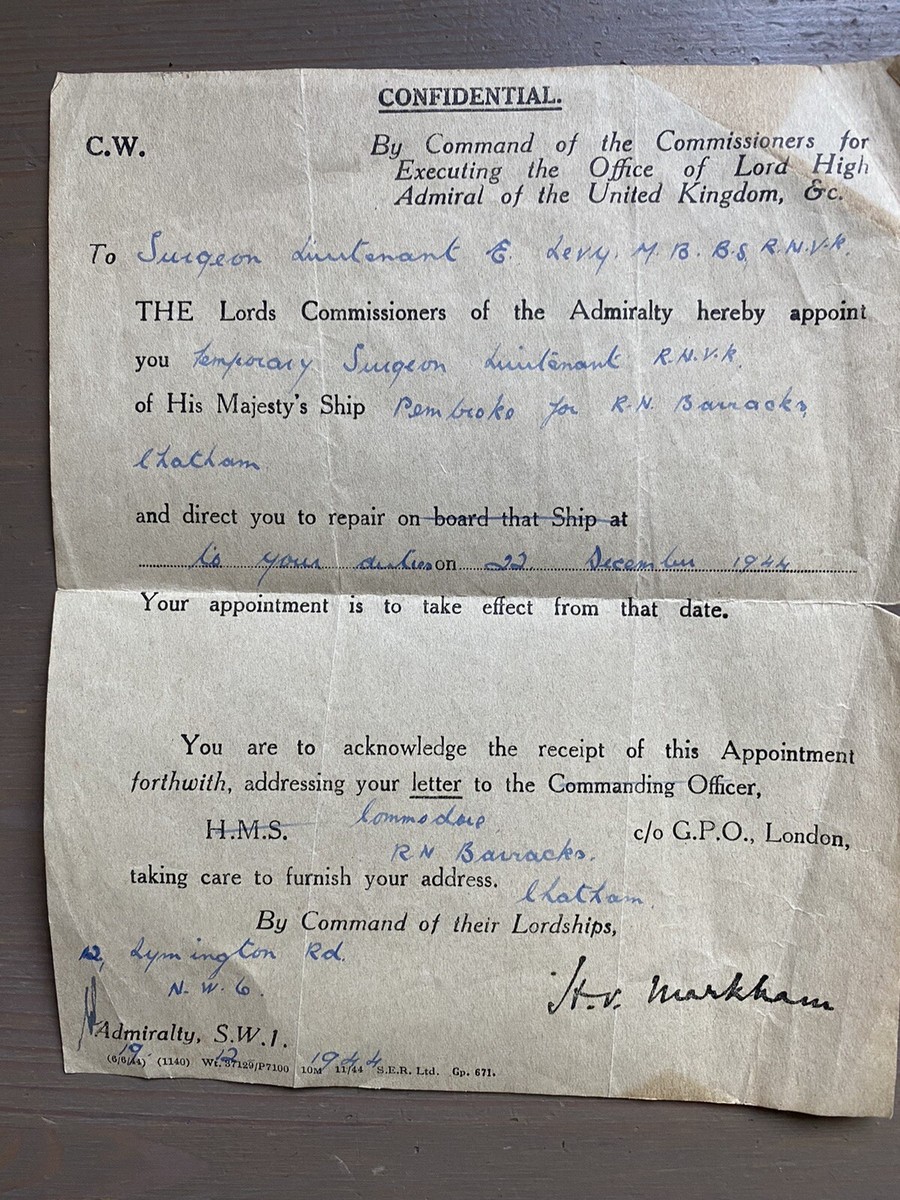 CONFIDENTIAL.
C.W.
By Command of the Commissioners for
Executing the Office of Lord High
Admiral of the United Kingdom, &c.
To Surgeon Lieutenant E. Levy. M.B. B.S, R.N.V.R.
THE Lords Commissioners of the Admiralty hereby appoint
you temporary Surgeon Lieutenant R.N.V.R.
of His Majesty's Ship Pembroke for R.N. Barracks,
Chatham
and direct you to repair on board that Ship at
to your duties on 22 December 1944
Your appointment is to take effect from that date.
You are to acknowledge the receipt of this Appointment
forthwith, addressing your letter to the Commanding Officer,
H.M.S. Commodore c/o G.P.O., London,
RN Barracks.
taking care to furnish your address.
Chatham
By Command of their Lordships,
12, Lymington Rd.
N.W.6.
H.V. Markham
Admiralty, S.W.1.
19. 12 1944
(6/6/44) (1140) Wt. 37129/P7100 10M 11/44 S.E.R. Ltd. Gp. 671.